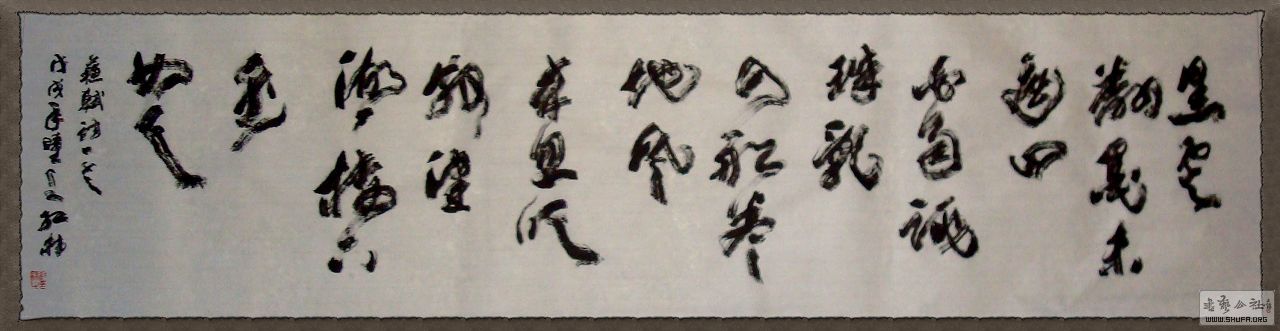 黑雲
翻墨未
遮山
白雨跳
珠亂
入船卷
地风
来忽吹
散望
湖楼下
水
如天
蘇軾詩一首
戊戌年
書藝公社
WWW.SHUFA.ORG